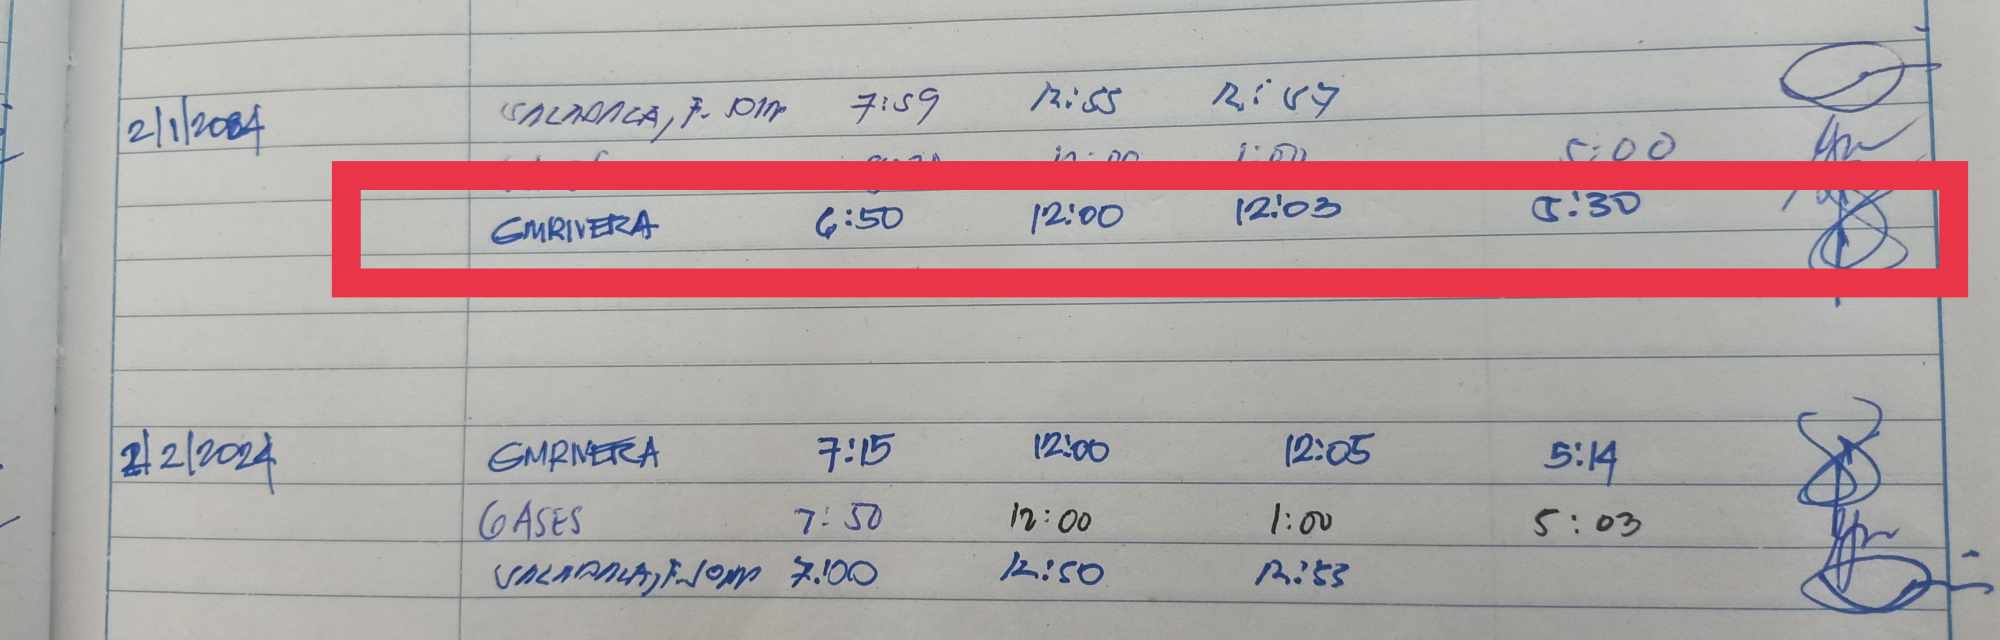 2/1/2024 7:59 12:55 12:57
1:00 5:00
GMRIVERA 6:50 12:00 12:03 5:30
2/2/2024 GMRIVERA 7:15 12:00 12:05 5:14
GASES 7:50 12:00 1:00 5:03
7:00 12:50 12:53